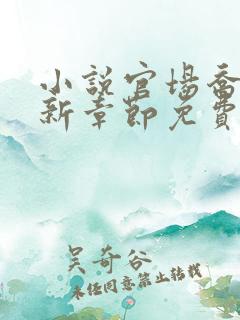 小說官場喬
新章節免費
吴奇谷
未经同意禁止转载